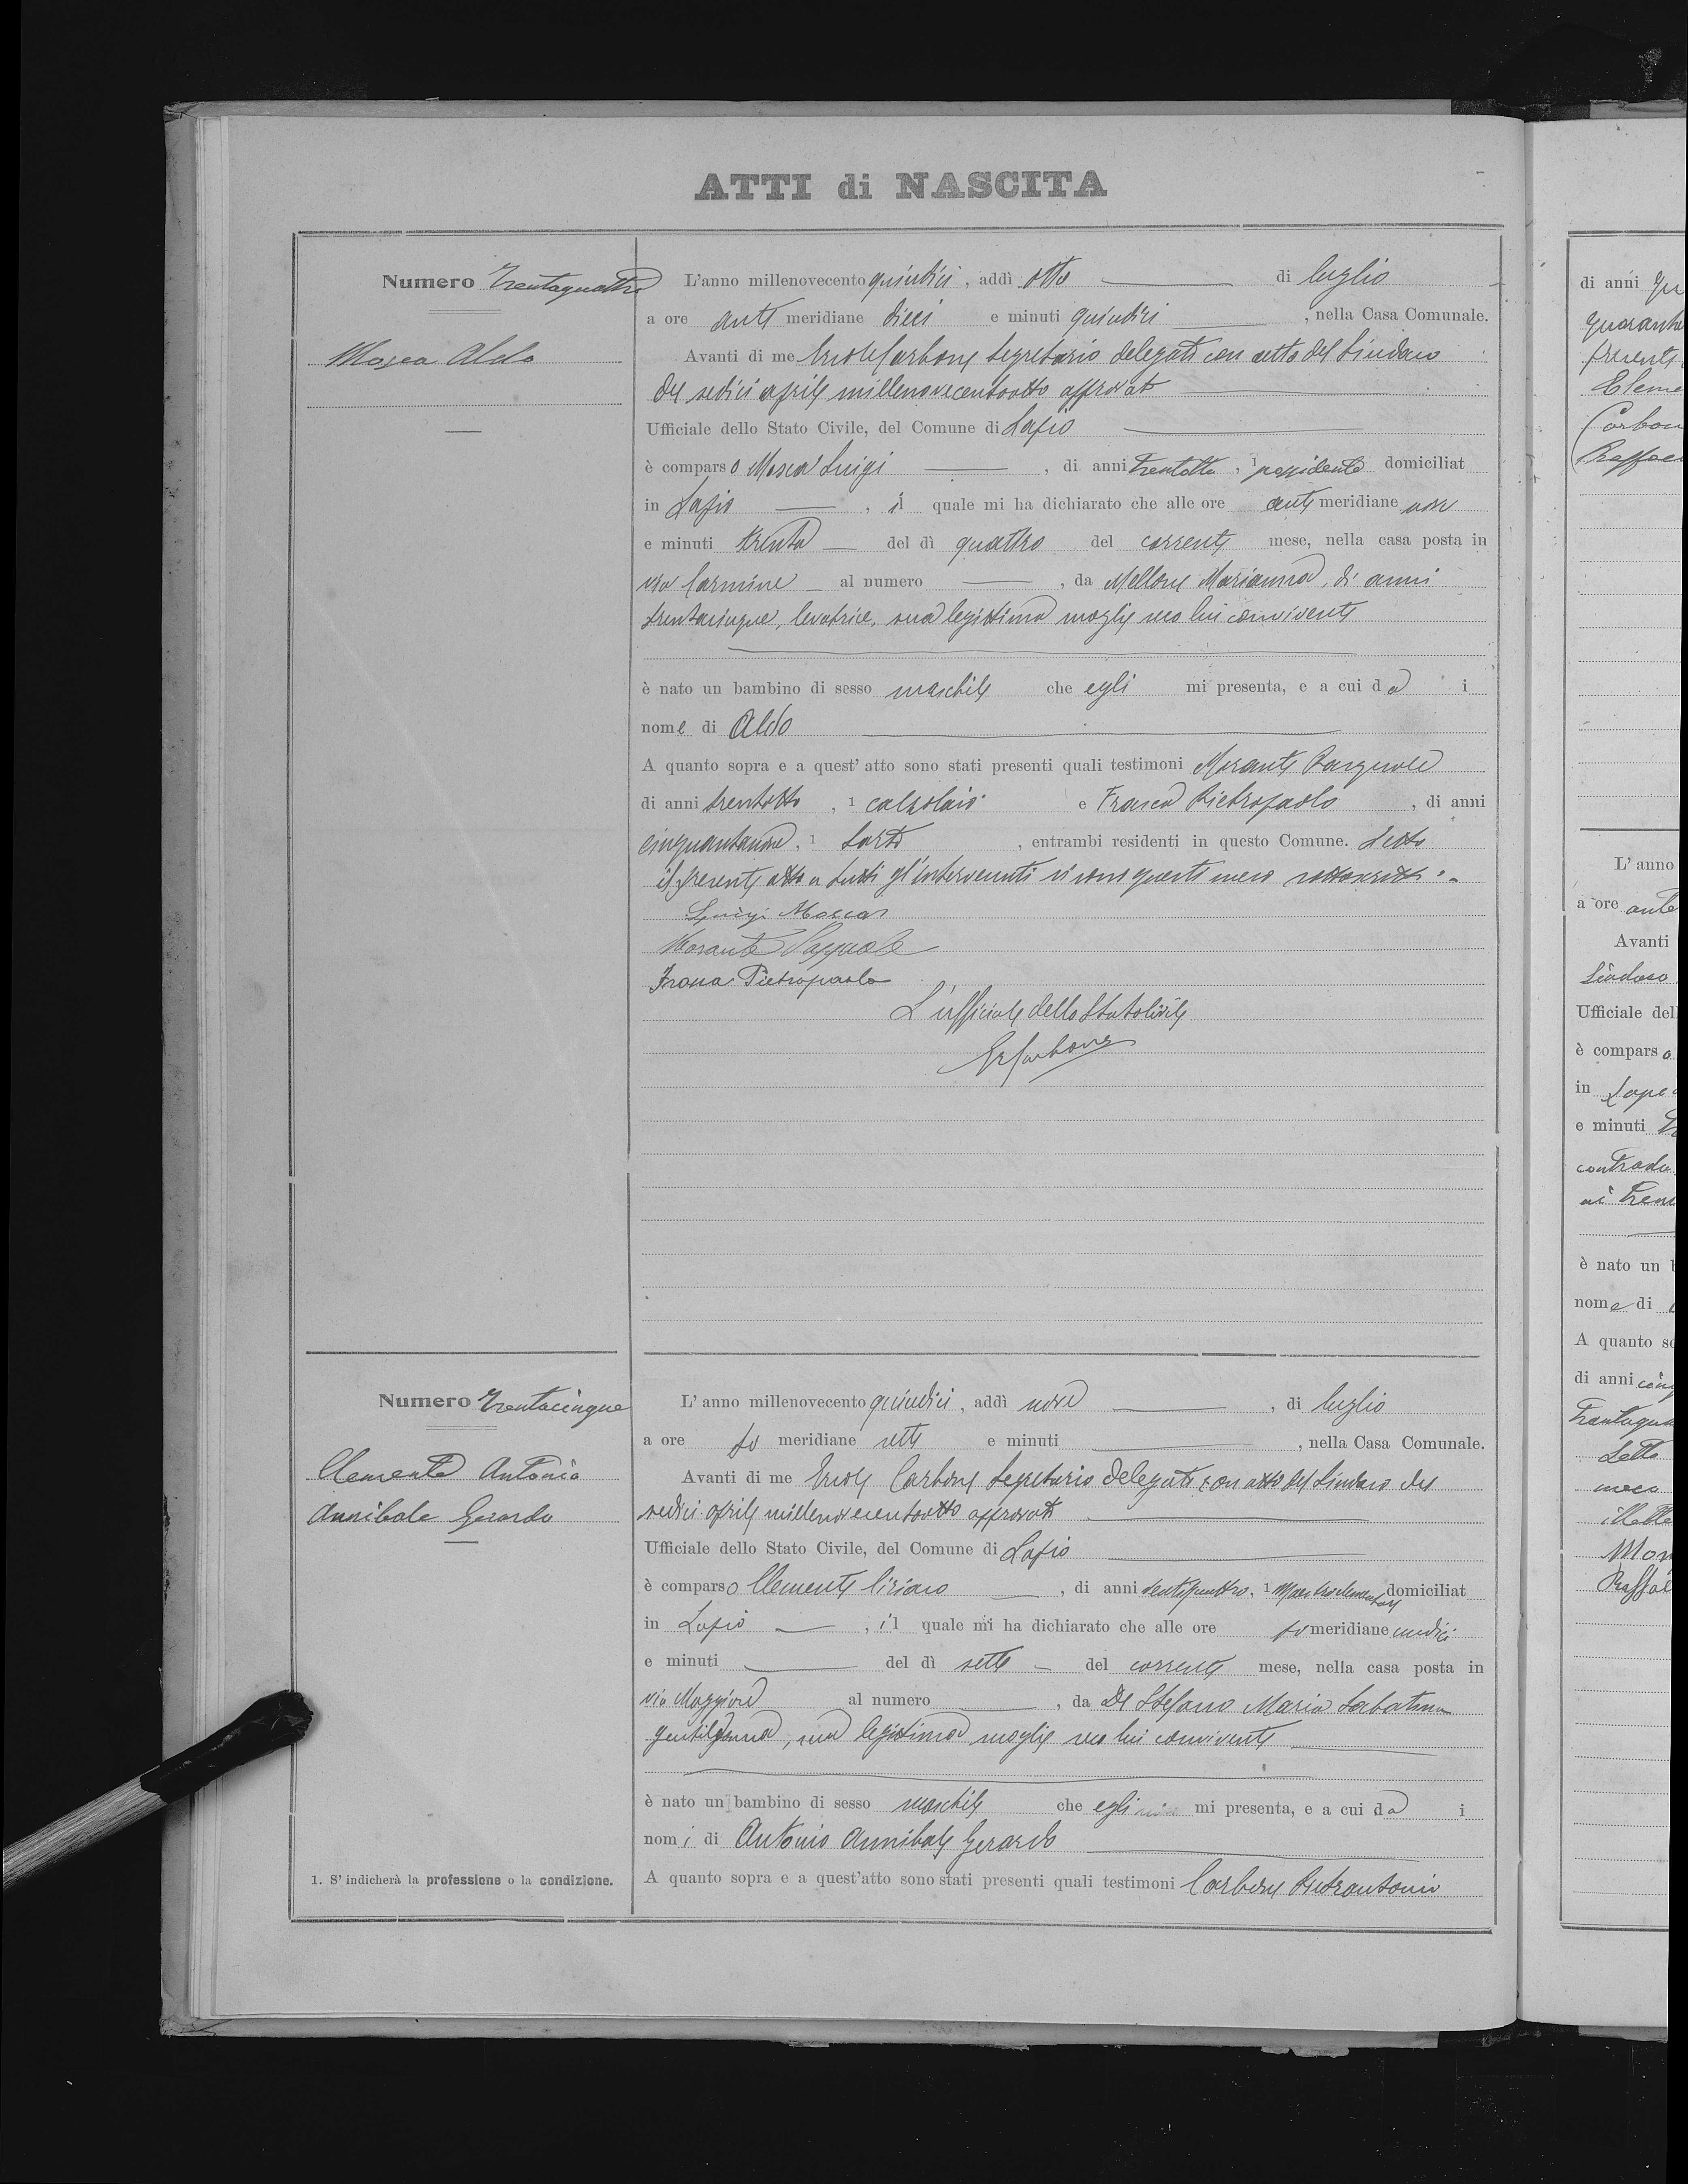 ATTI di NASCITA
Numero Trentaquattro
Mosca Aldo
L'anno millenovecento quindici, addì otto di luglio
a ore anti meridiane dieci e minuti quindici, nella Casa Comunale.
Avanti di me Ercole Carbone Segretario delegato con atto del Sindaco
del sedici aprile millenovecentootto approvato
Ufficiale dello Stato Civile, del Comune di Lapio
è comparso Mosca Luigi, di anni trentotto, 1 possidente domiciliat
in Lapio, il quale mi ha dichiarato che alle ore anti meridiane nove
e minuti trenta del dì quattro del corrente mese, nella casa posta in
via Carmine al numero, da Mellone Marianna, di anni
trentacinque, levatrice, sua legittima moglie seco lui convivente
è nato un bambino di sesso maschile che egli mi presenta, e a cui da i
nome di Aldo
A quanto sopra e a quest'atto sono stati presenti quali testimoni Morante Pasquale
di anni trentotto, 1 calzolaio e Frasca Pietropaolo, di anni
cinquantanove, 1 sarto, entrambi residenti in questo Comune. Letto
il presente atto a tutti gl'intervenuti si sono questi meco sottoscritti
Luigi Mosca
Morante Pasquale
Frasca Pietropaolo
L'ufficiale dello Stato Civile
ErCarbone
Numero Trentacinque
Clemente Antonio
Annibale Gerardo
L'anno millenovecento quindici, addì nove, di luglio
a ore po meridiane sette e minuti, nella Casa Comunale.
Avanti di me Ercole Carbone Segretario delegato con atto del Sindaco del
sedici aprile millenovecentootto approvato
Ufficiale dello Stato Civile, del Comune di Lapio
è comparso Clemente Ciriaco, di anni ventiquattro, 1 Maestro elementare domiciliat
in Lapio, il quale mi ha dichiarato che alle ore po meridiane undici
e minuti del dì sette del corrente mese, nella casa posta in
via Maggiore al numero, da De Stefano Maria Sabatina
gentildonna, sua legittima moglie seco lui convivente
è nato un bambino di sesso maschile che egli mi presenta, e a cui da i
nomi di Antonio Annibale Gerardo
A quanto sopra e a quest'atto sono stati presenti quali testimoni Carbone Pietrantonio
1. S'indicherà la professione o la condizione.
di anni
presente
Carbon
Raffae
L'anno
a ore ante
Avanti
Sindaco
Ufficiale dell
è comparso
in Lapio
e minuti
contrada
è nato un b
nome di
A quanto so
di anni cinq
Letto
meco
Raffael